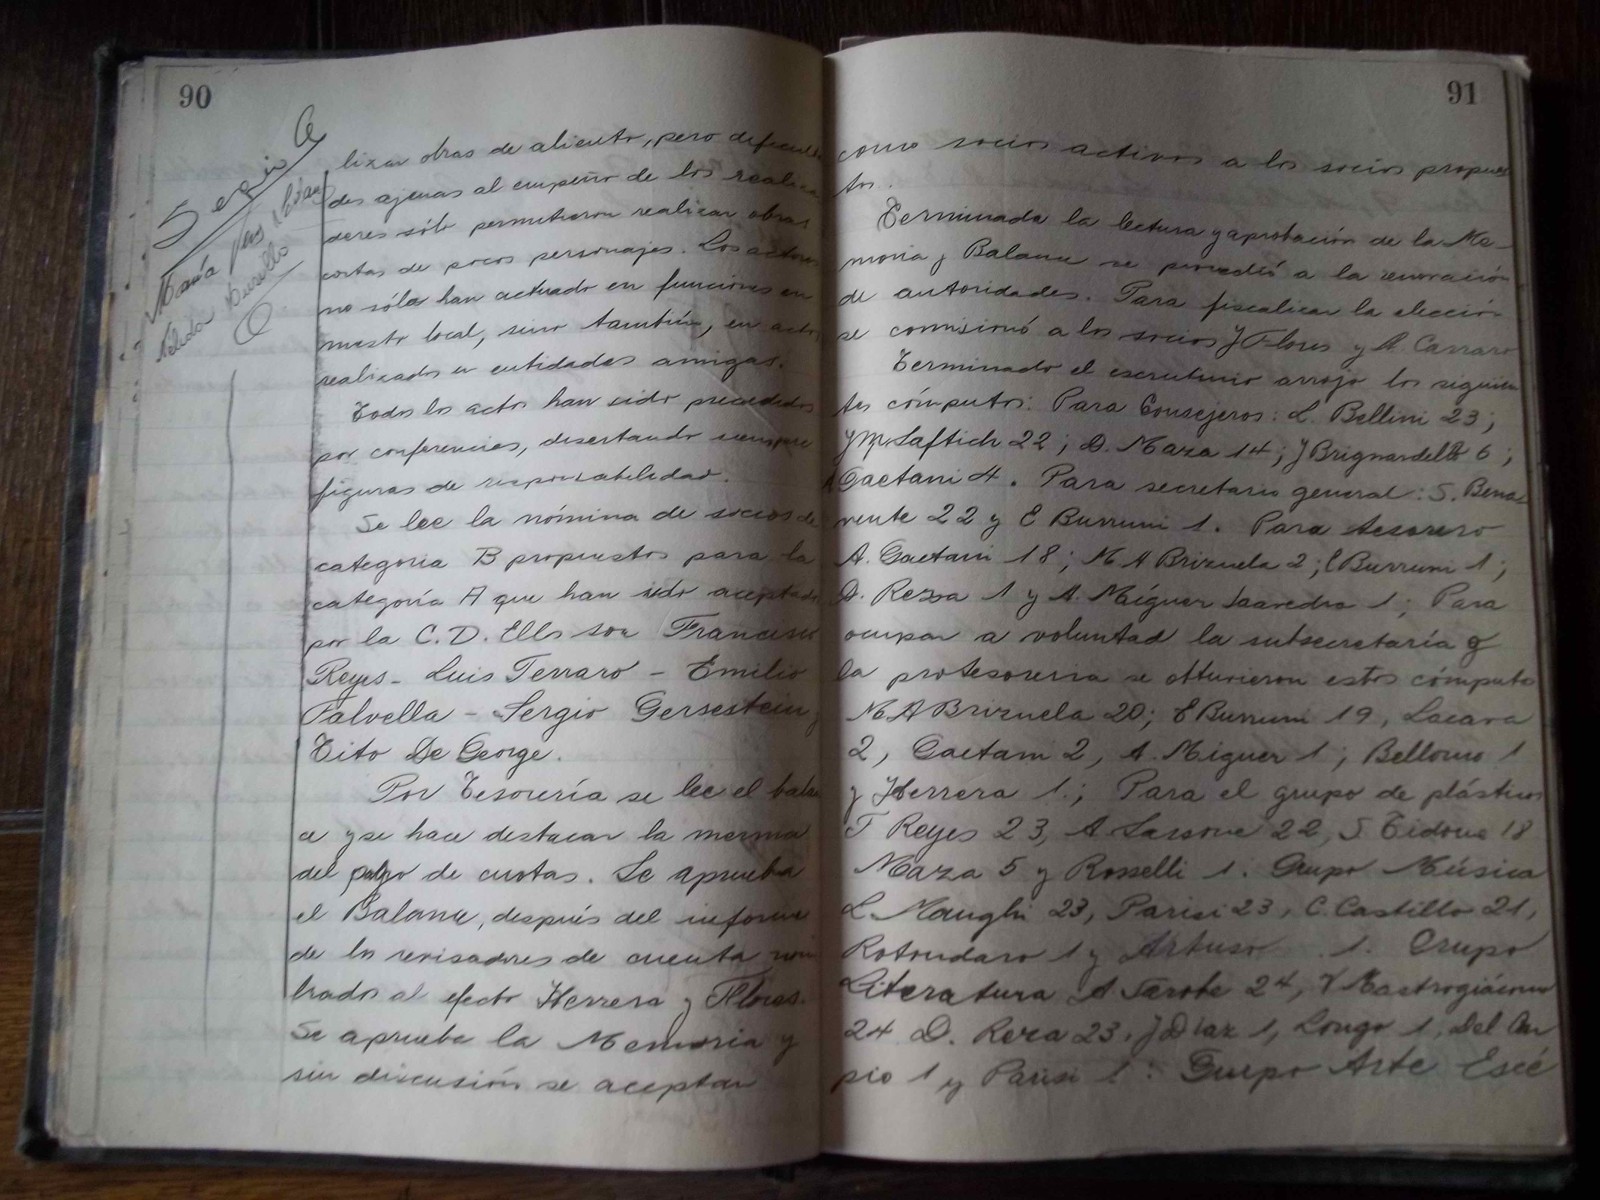 90
Sergio
María
Nélida
lizar obras de aliento, pero dificulta
des ajenas al empeño de los realiza
dores sólo permitieron realizar obras
cortas de pocos personajes. Los actores
no sólo han actuado en funciones en
nuestro local, sino también, en actos
realizados en entidades amigas.
Todos los actos han sido precedidos
por conferencias, disertando siempre
figuras de responsabilidad.
Se lee la nómina de socios de
categoría B propuestos para la
categoría A que han sido aceptados
por la C. D. Ellos son Francisco
Reyes - Luis Terraro - Emilio
Falvella - Sergio Gersestein y
Tito De George.
Por Tesorería se lee el balan
ce y se hace destacar la merma
del pago de cuotas. Se aprueba
el Balance, después del informe
de los revisadores de cuenta nom
brados al efecto Herrera y Flores.
Se aprueba la Memoria y
sin discusión se aceptan
91
como socios activos a los socios propues
tos.
Terminada la lectura y aprobación de la Me-
moria y Balance se procedió a la renovación
de autoridades. Para fiscalizar la elección
se comisionó a los socios J Flores y A. Carraro
Terminado el escrutinio arrojo los siguien
tes cómputos: Para Consejeros: L. Bellini 23;
J M Laftich 22; D. Maza 14; J Brignardello 6;
A Gaetani 4. Para secretario general: S. Bena
vente 22 y E Burruni 1. Para tesorero
A. Gaetani 18; M A Brizuela 2; E Burruni 1;
D. Rezza 1 y A. Míguez Saavedra 1; Para
ocupar a voluntad la subsecretaría o
la protesoreria se obtuvieron estos cómputos
M A Brizuela 20; E Burruni 19, Lacava
2, Gaetani 2, A. Miguez 1; Bellomo 1
y Herrera 1.; Para el grupo de plásticos
F Reyes 23, A Sassone 22, S Tidone 18
Maza 5 y Rosselli 1. Grupo Música
L. Manghi 23, Parisi 23, C. Castillo 21,
Rotondaro 1 y Artuso 1. Grupo
Literatura A. Sarobe 24, V Mastrogiácomo
24 D. Reza 23. J Diaz 1, Longo 1, Del Car
pio 1 y Parisi 1: Grupo Arte Escé